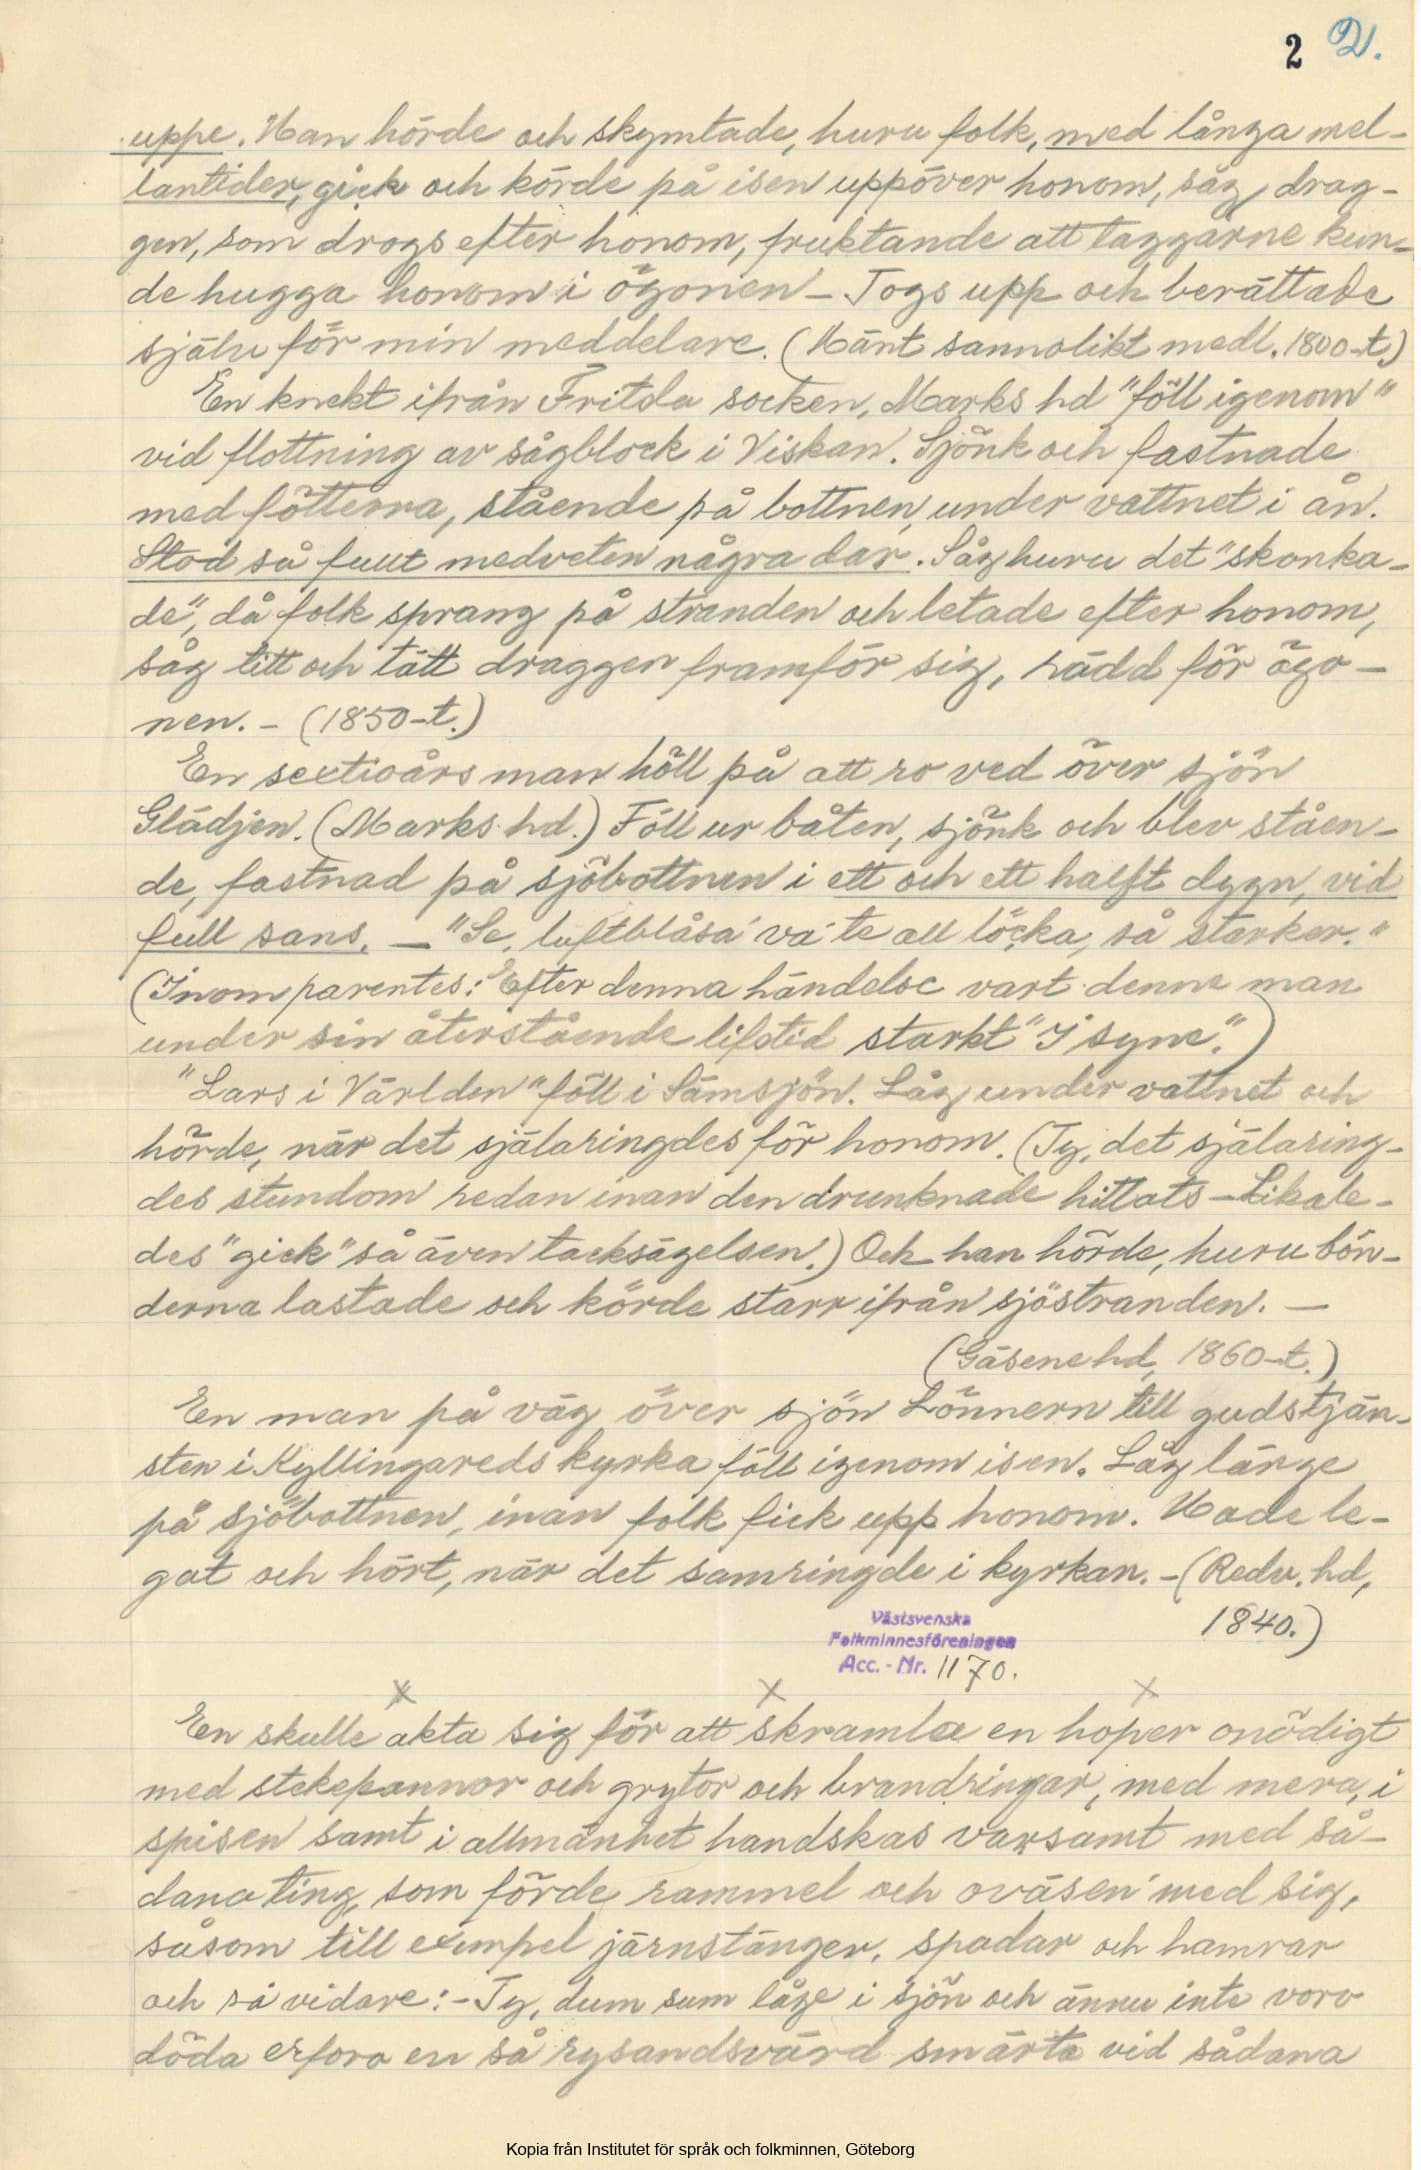 2 2.
uppe. Han hörde och skymtade, huru folk, med långa mel-
lantider, gick och körde på isen uppöver honom, såg drag-
gen, som drogs efter honom, fruktande att taggarne kun-
de hugga honom i ögonen – Togs upp och berättade
själv för min meddelare. (Hänt sannolikt medl. 1800-t.)
En knekt ifrån Fritsla socken, Marks hd "föll igenom"
vid flottning av sågblock i Viskan. Sjönk och fastnade
med fötterna, stående på bottnen, under vattnet i ån.
Stod så fullt medveten några dar. Såg huru det "skonka-
de", då folk sprang på stranden och letade efter honom,
såg titt och tätt draggen framför sig, rädd för ögo-
nen. – (1850-t.)
En sextioårs man höll på att ro ved över sjön
Glädjen. (Marks hd.) Föll ur båten, sjönk och blev ståen-
de, fastnad på sjöbottnen i ett och ett halft dygn, vid
full sans. – "Se, luftblåsa' va' te all löcka, så starker."
(Inom parentes: Efter denna händelse vart denne man
under sin återstående lifstid starkt "I syne".)
"Lars i Världen" föll i Sämsjön. Låg under vattnet och
hörde, när det själaringdes för honom. (Ty, det själaring-
des stundom redan inan den drunknade hittats – Likale-
des "gick" så även tacksägelsen.) Och han hörde, huru bön-
derna lastade och körde starr ifrån sjöstranden. –
(Gäsene hd, 1860-t.)
En man på väg över sjön Lönnern till gudstjän-
sten i Kyllingareds kyrka föll igenom isen. Låg länge
på sjöbottnen, inan folk fick upp honom. Hade le-
gat och hört, när det samringde i kyrkan. – (Redv. hd,
1840.)
Västsvenska
Folkminnesföreningen
Acc. - Nr. 1170.
x x x
En skulle akta sig för att skramla en hoper onödigt
med stekepannor och grytor och brandringar, med mera, i
spisen samt i allmänhet handskas varsamt med så-
dana ting, som förde rammel och oväsen med sig,
såsom till exempel järnstänger, spadar och hamrar
och så vidare: – Ty, dum sum låge i sjön och ännu inte voro
döda erforo en så rysandsvärd smärta vid sådana
Kopia från Institutet för språk och folkminnen, Göteborg